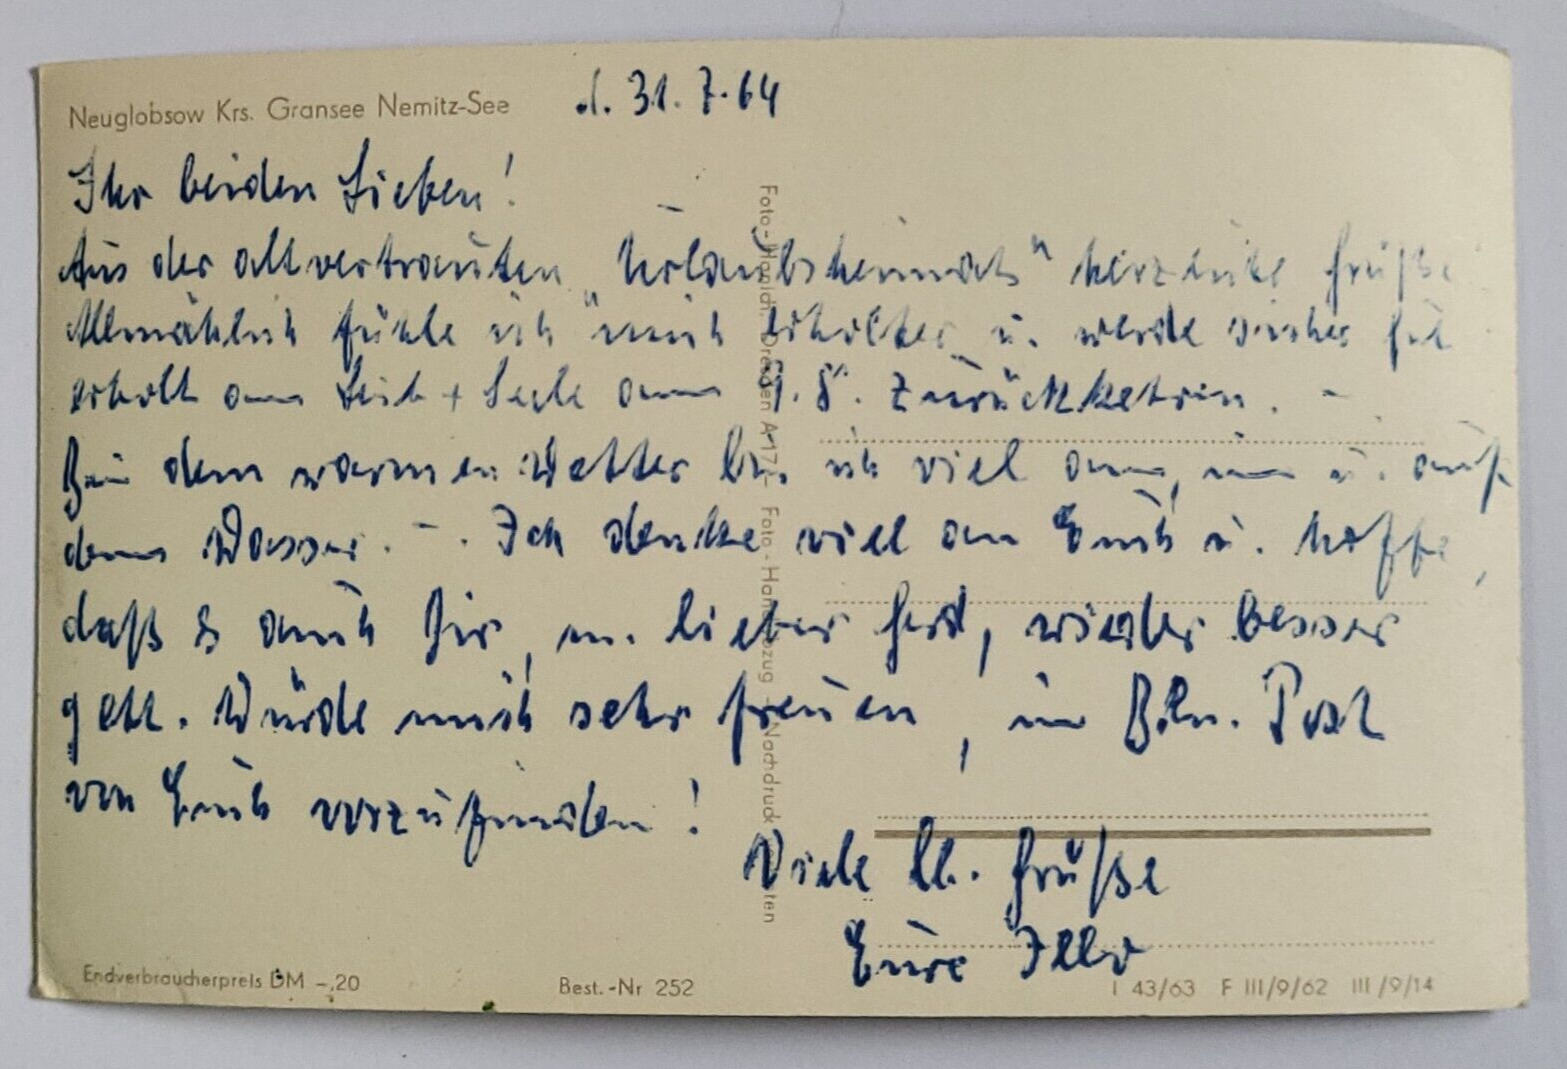 Neuglobsow Krs. Gransee Nemitz-See
d. 31.7.64
Ihr beiden Lieben!
Aus der altvertrauten „Urlaubsheimat" herzliche Grüße
Allmählich fühle ich mich erholter u. werde sicher gut
erholt an Leib + Seele am 9.8. zurückkehren. –
Bei dem warmen Wetter bin ich viel am, im u. auf
dem Wasser. –. Ich denke viel an Euch u. hoffe,
daß es auch Dir, m. lieber Gerd, wieder besser
geht. Würde mich sehr freuen, in Bln. Post
von Euch vorzufinden!
Viele lb. Grüße
Eure
Foto-Handabzug - Nachdruck
Endverbraucherpreis DM -,20
Best.-Nr 252
I 43/63 F III/9/62 III/9/14